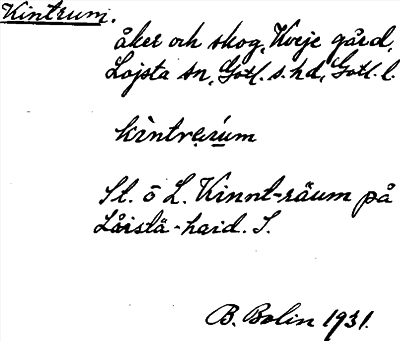 Kintrum.
åker och skog, Kveje gård,
Lojsta sn, Gotl. s. hd, Gotl. l.
kìntrεum
St. ö L. Kinnt-räum på
Låistä-haid. S.
B. Bolin 1931.